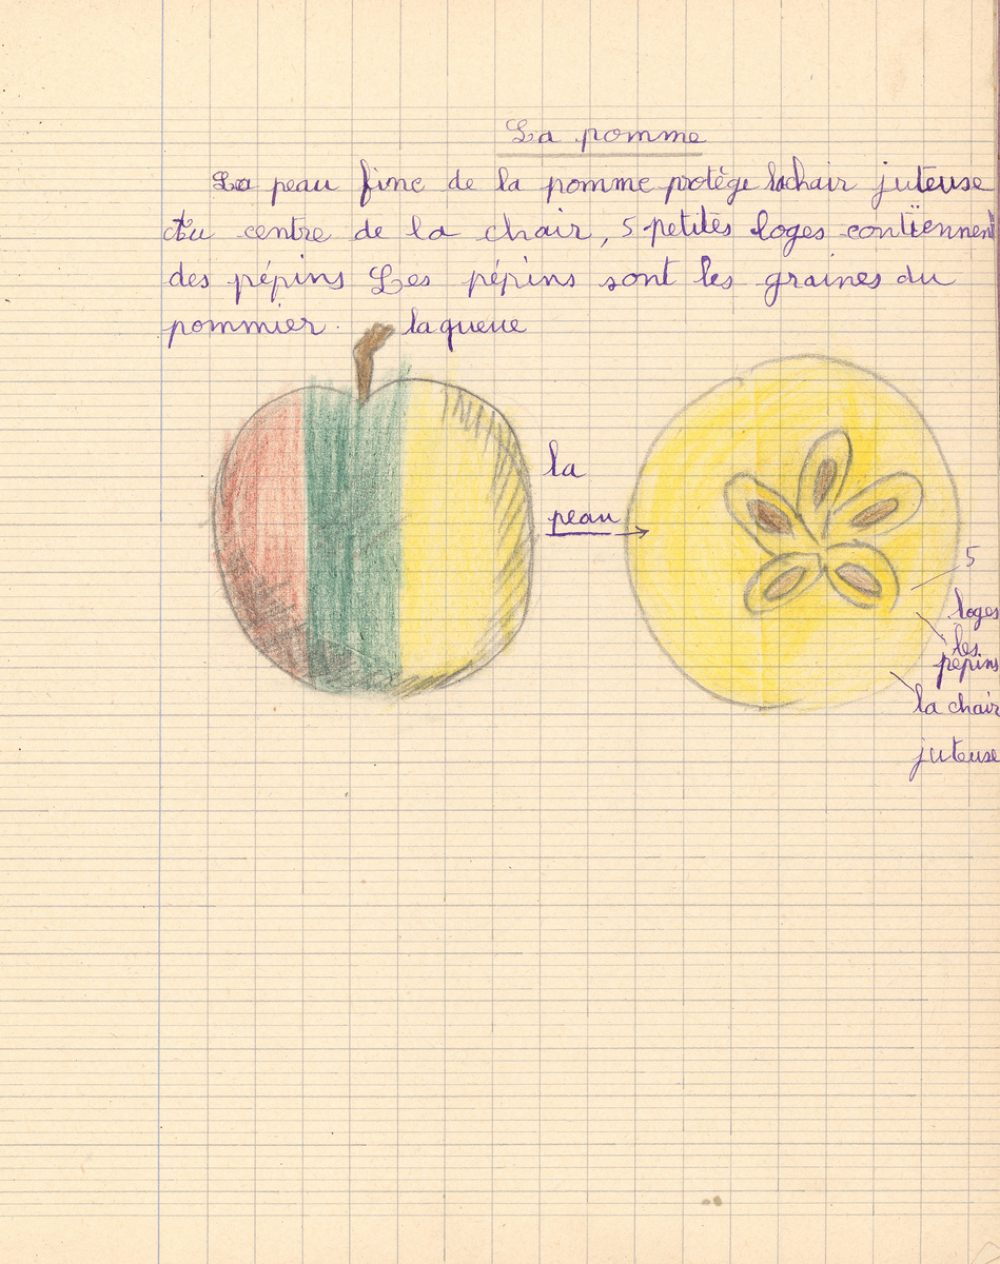 La pomme
La peau fine de la pomme protège la chair juteuse
Au centre de la chair, 5 petites loges contiennent
des pépins Les pépins sont les graines du
pommier.
la queue
la
peau
5
loges
les
pépins
la chair
juteuse